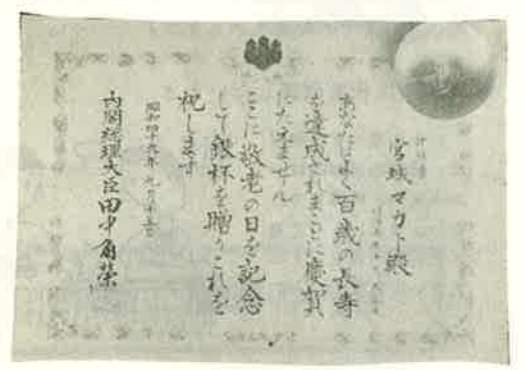 宮城マカト殿
あなたはよく百歳の長寿
を達成されまことに慶賀
にたえません
ここに敬老の日を記念
して銀杯を贈りこれを
祝します
昭和四十九年九月十五日
内閣総理大臣田中角榮